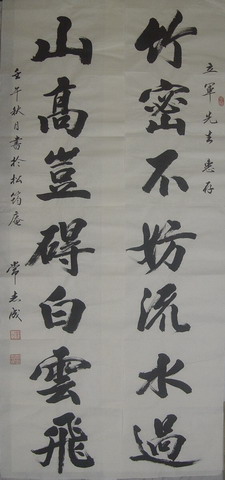 立軍先生惠存
竹密不妨流水過
山高豈礙白雲飛
壬午秋月書於松筠庵
常志成